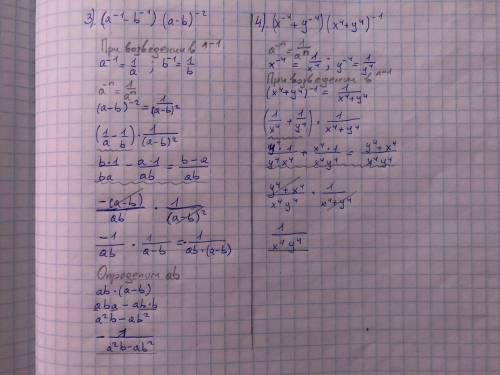 3) (a⁻¹-b⁻¹) (a-b)⁻²
При возведении в n⁻¹
a⁻¹ = 1/a ; b⁻¹ = 1/b
a⁻ⁿ = 1/aⁿ
(a-b)⁻² = 1/(a-b)²
(1/a - 1/b) · 1/(a-b)²
b·1/ba - a·1/ab = b-a/ab
-(a-b)/ab · 1/(a-b)²
-1/ab · 1/a-b = - 1/ab·(a-b)
Определим ab
ab·(a-b)
aba - ab·b
a²b - ab²
- 1/a²b-ab²
4). (x⁻⁴+y⁻⁴) (x⁴+y⁴)⁻¹
a⁻ⁿ = 1/aⁿ
x⁻⁴ = 1/x⁴ ; y⁻⁴ = 1/y⁴
При возведении в n⁻¹
(x⁴+y⁴)⁻¹ = 1/x⁴+y⁴
(1/x⁴ + 1/y⁴) · 1/x⁴+y⁴
y⁴·1/y⁴x⁴ + x⁴·1/x⁴y⁴ = y⁴+x⁴/x⁴y⁴
y⁴+x⁴/x⁴y⁴ · 1/x⁴+y⁴
1/x⁴y⁴